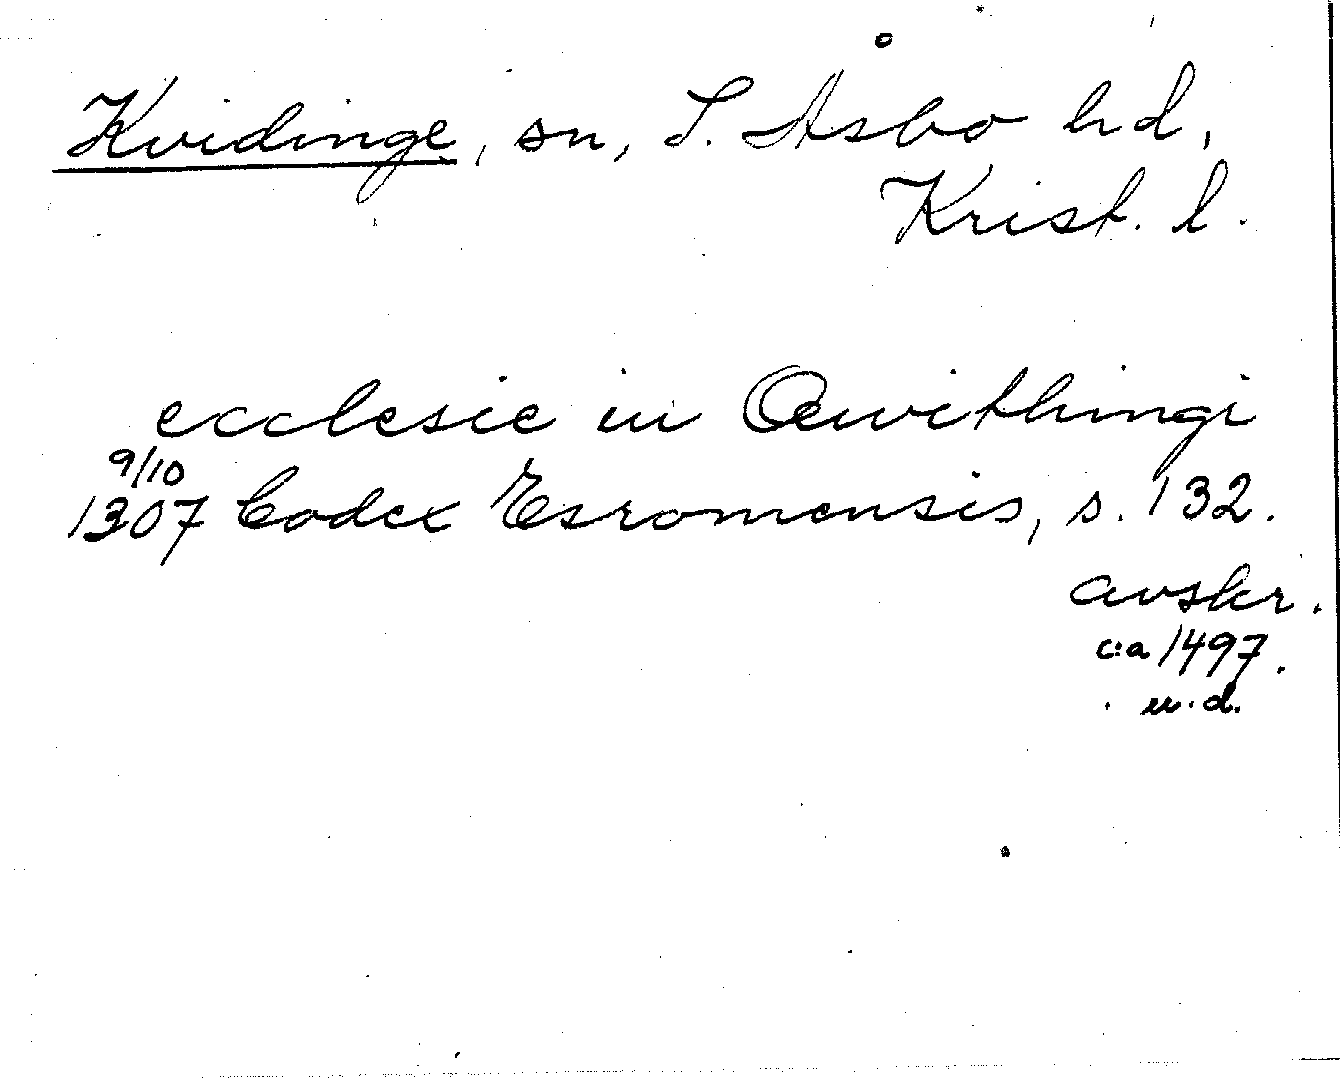 Kvidinge, sn, S. Åsbo hd,
Krist. l.
ecclesie in Qwithingi
9/10
1307 Codex Esromensis, s. 132.
avskr.
c:a 1497.
u.d.